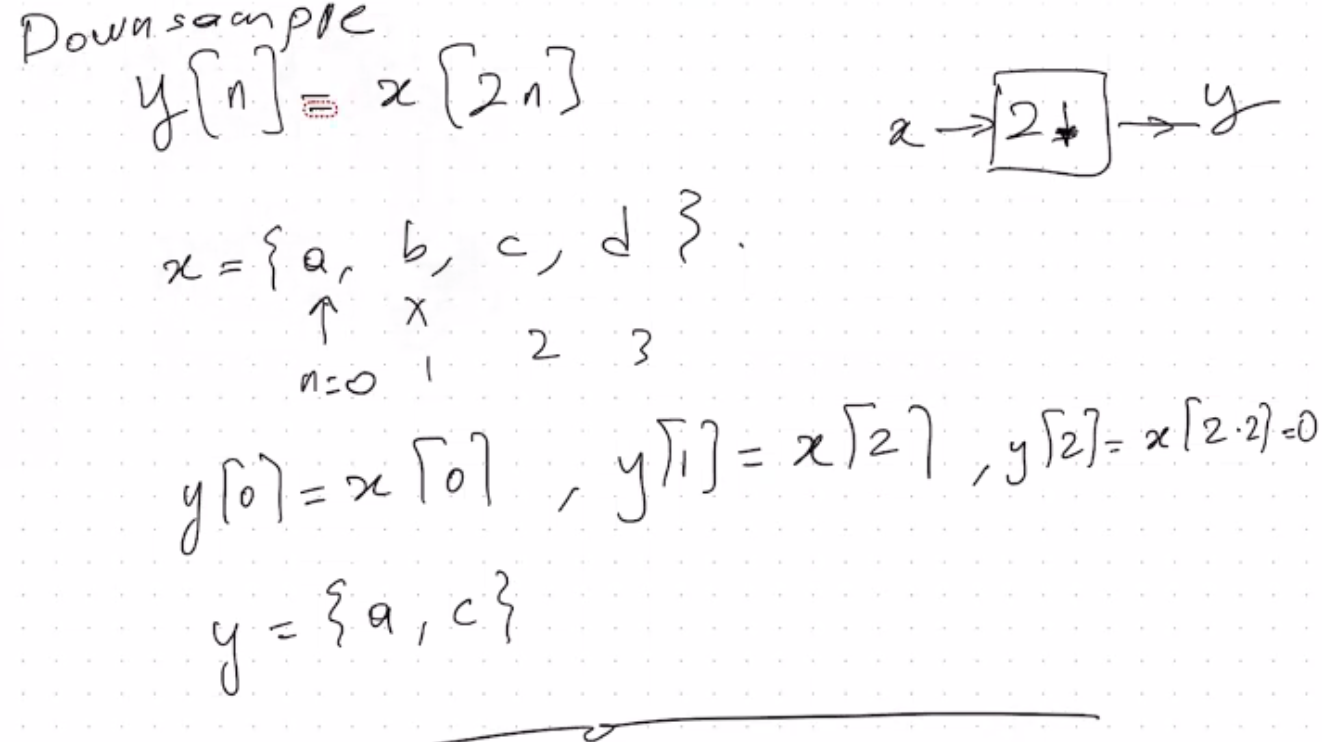 Downsample
y[n] = x[2n]
x → 2↓ → y
x = { a, b, c, d }.
↑ x
n=0 1 2 3
y[0] = x[0] , y[1] = x[2] , y[2] = x[2·2] = 0
y = { a, c }